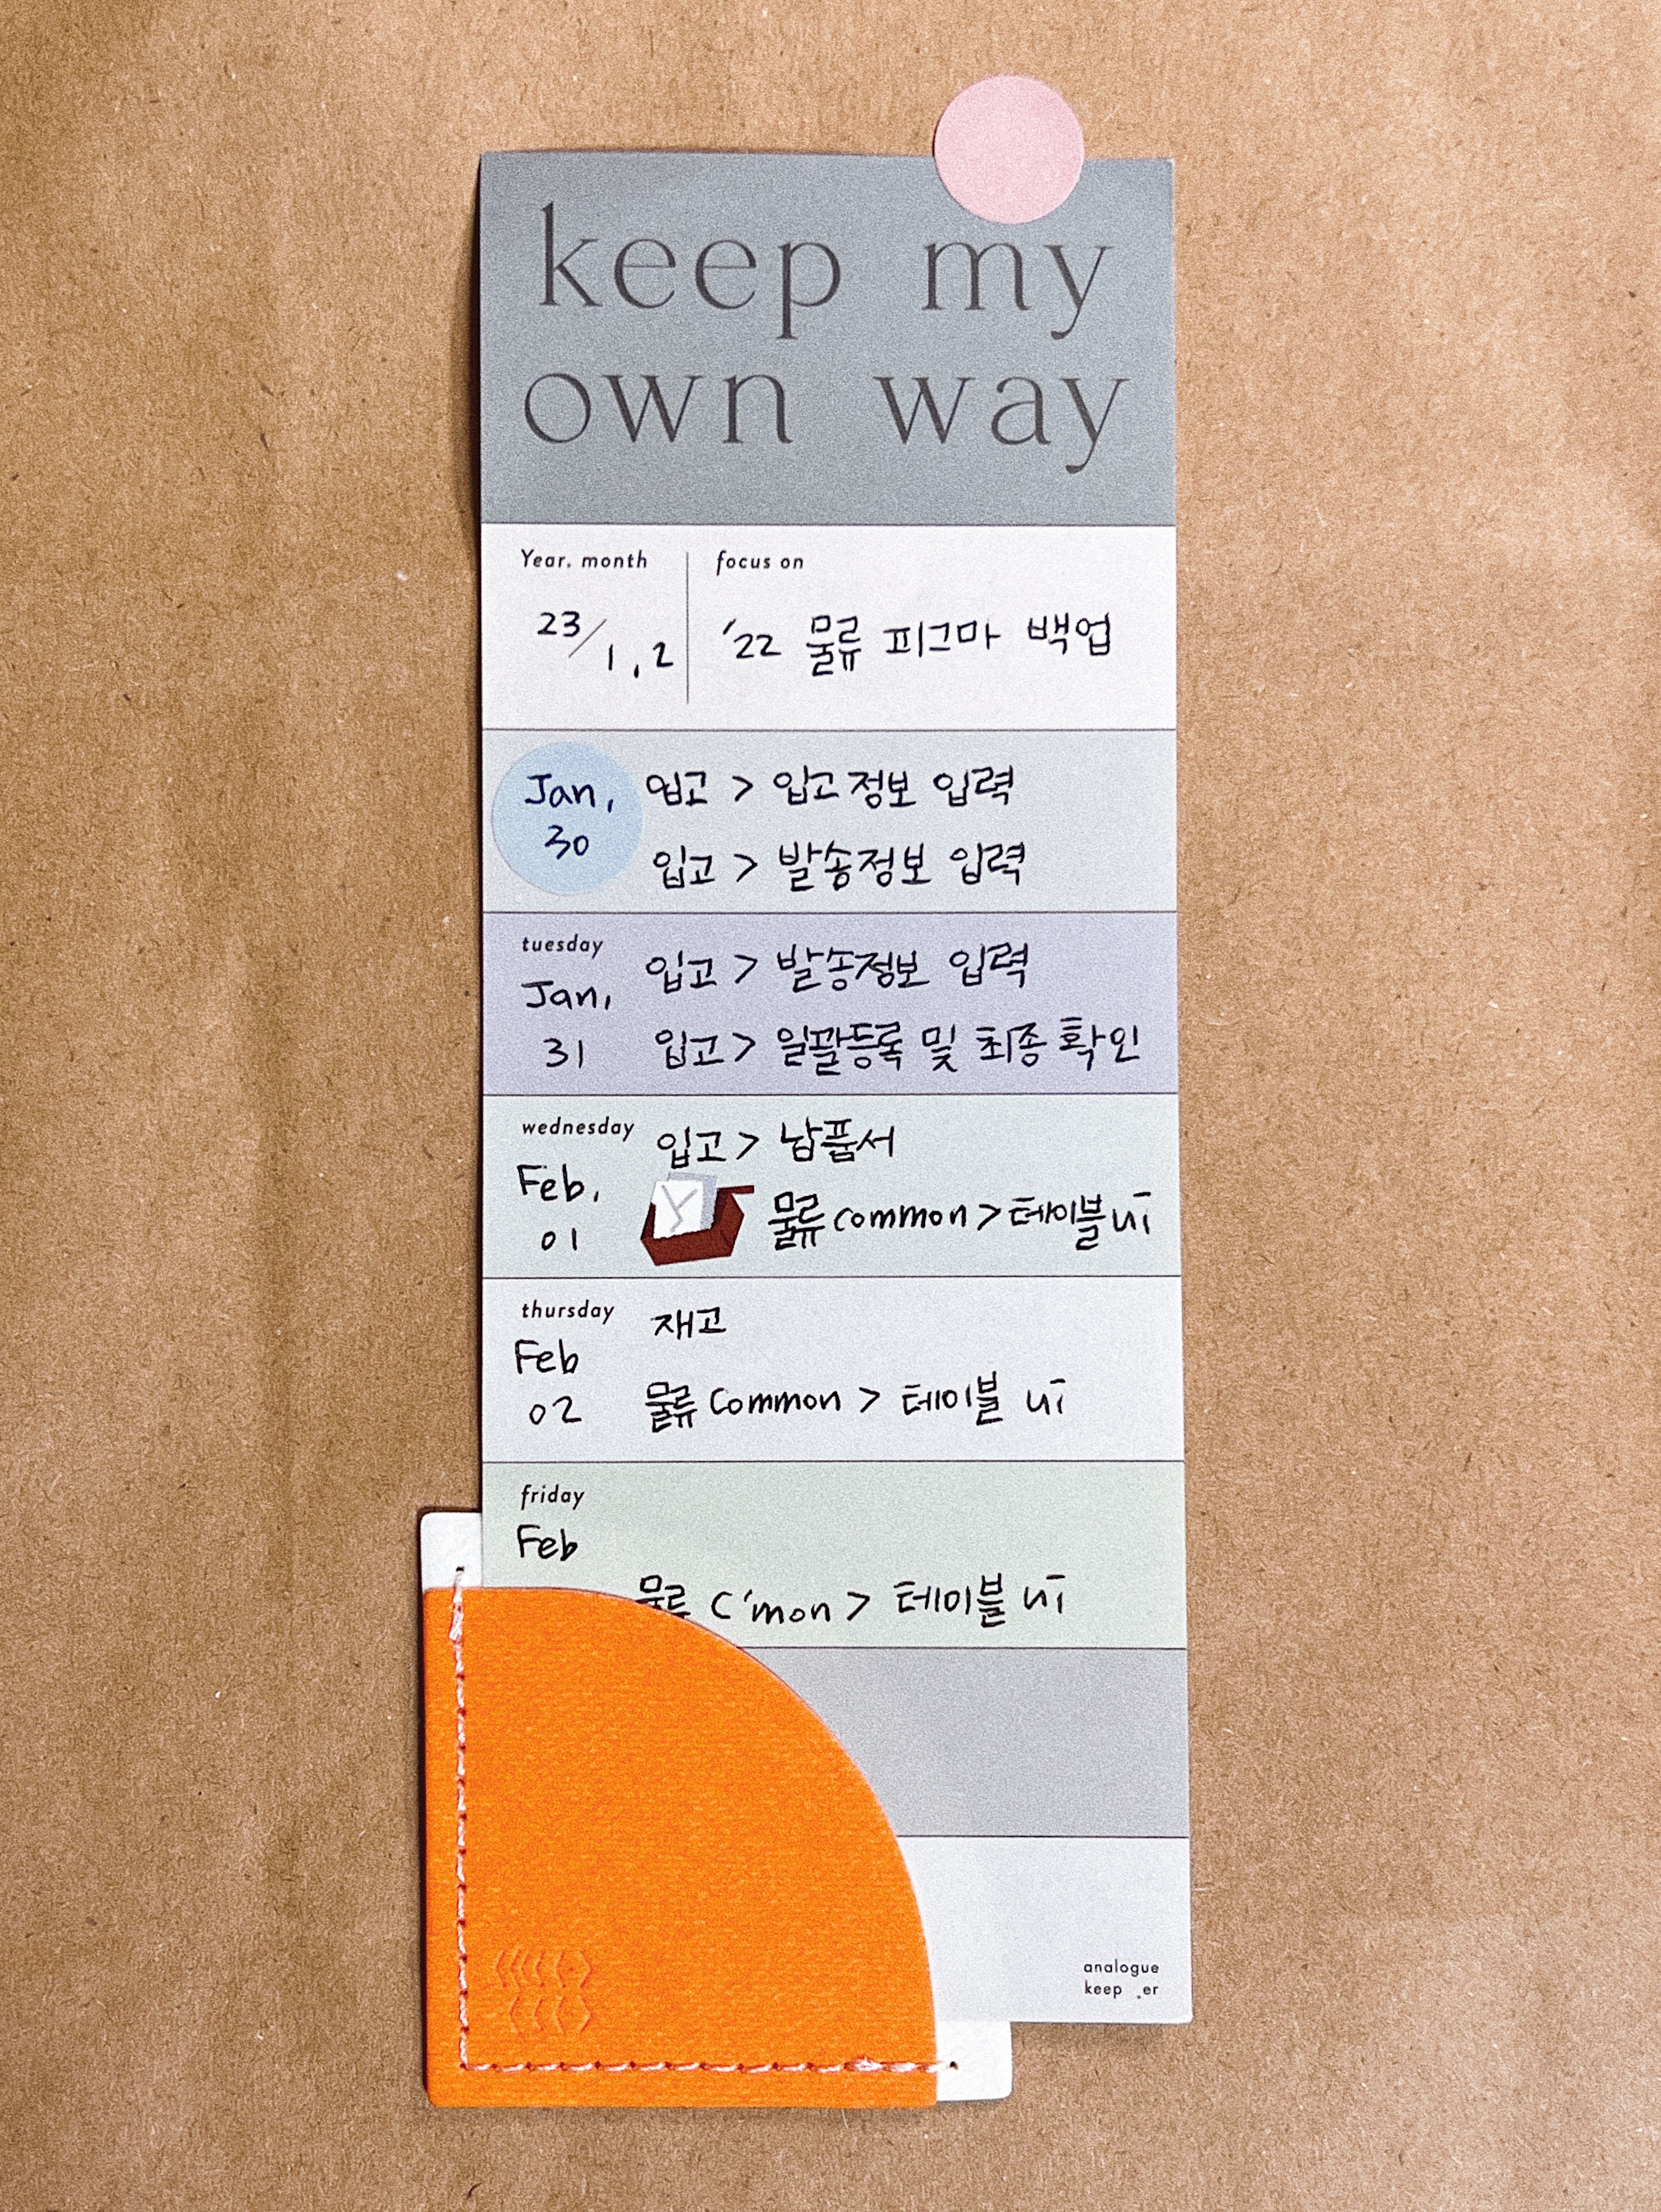 keep my
own way
Year. month
focus on
23/1, 2
'22 물류 피그마 백업
Jan, 30
입고 > 입고 정보 입력
입고 > 발송정보 입력
tuesday
Jan, 31
입고 > 발송정보 입력
입고 > 일괄등록 및 최종 확인
wednesday
Feb, 01
입고 > 납품서
물류 common > 테이블 ui
thursday
Feb 02
재고
물류 Common > 테이블 ui
friday
Feb
물류 c'mon > 테이블 ui
analogue
keep .er